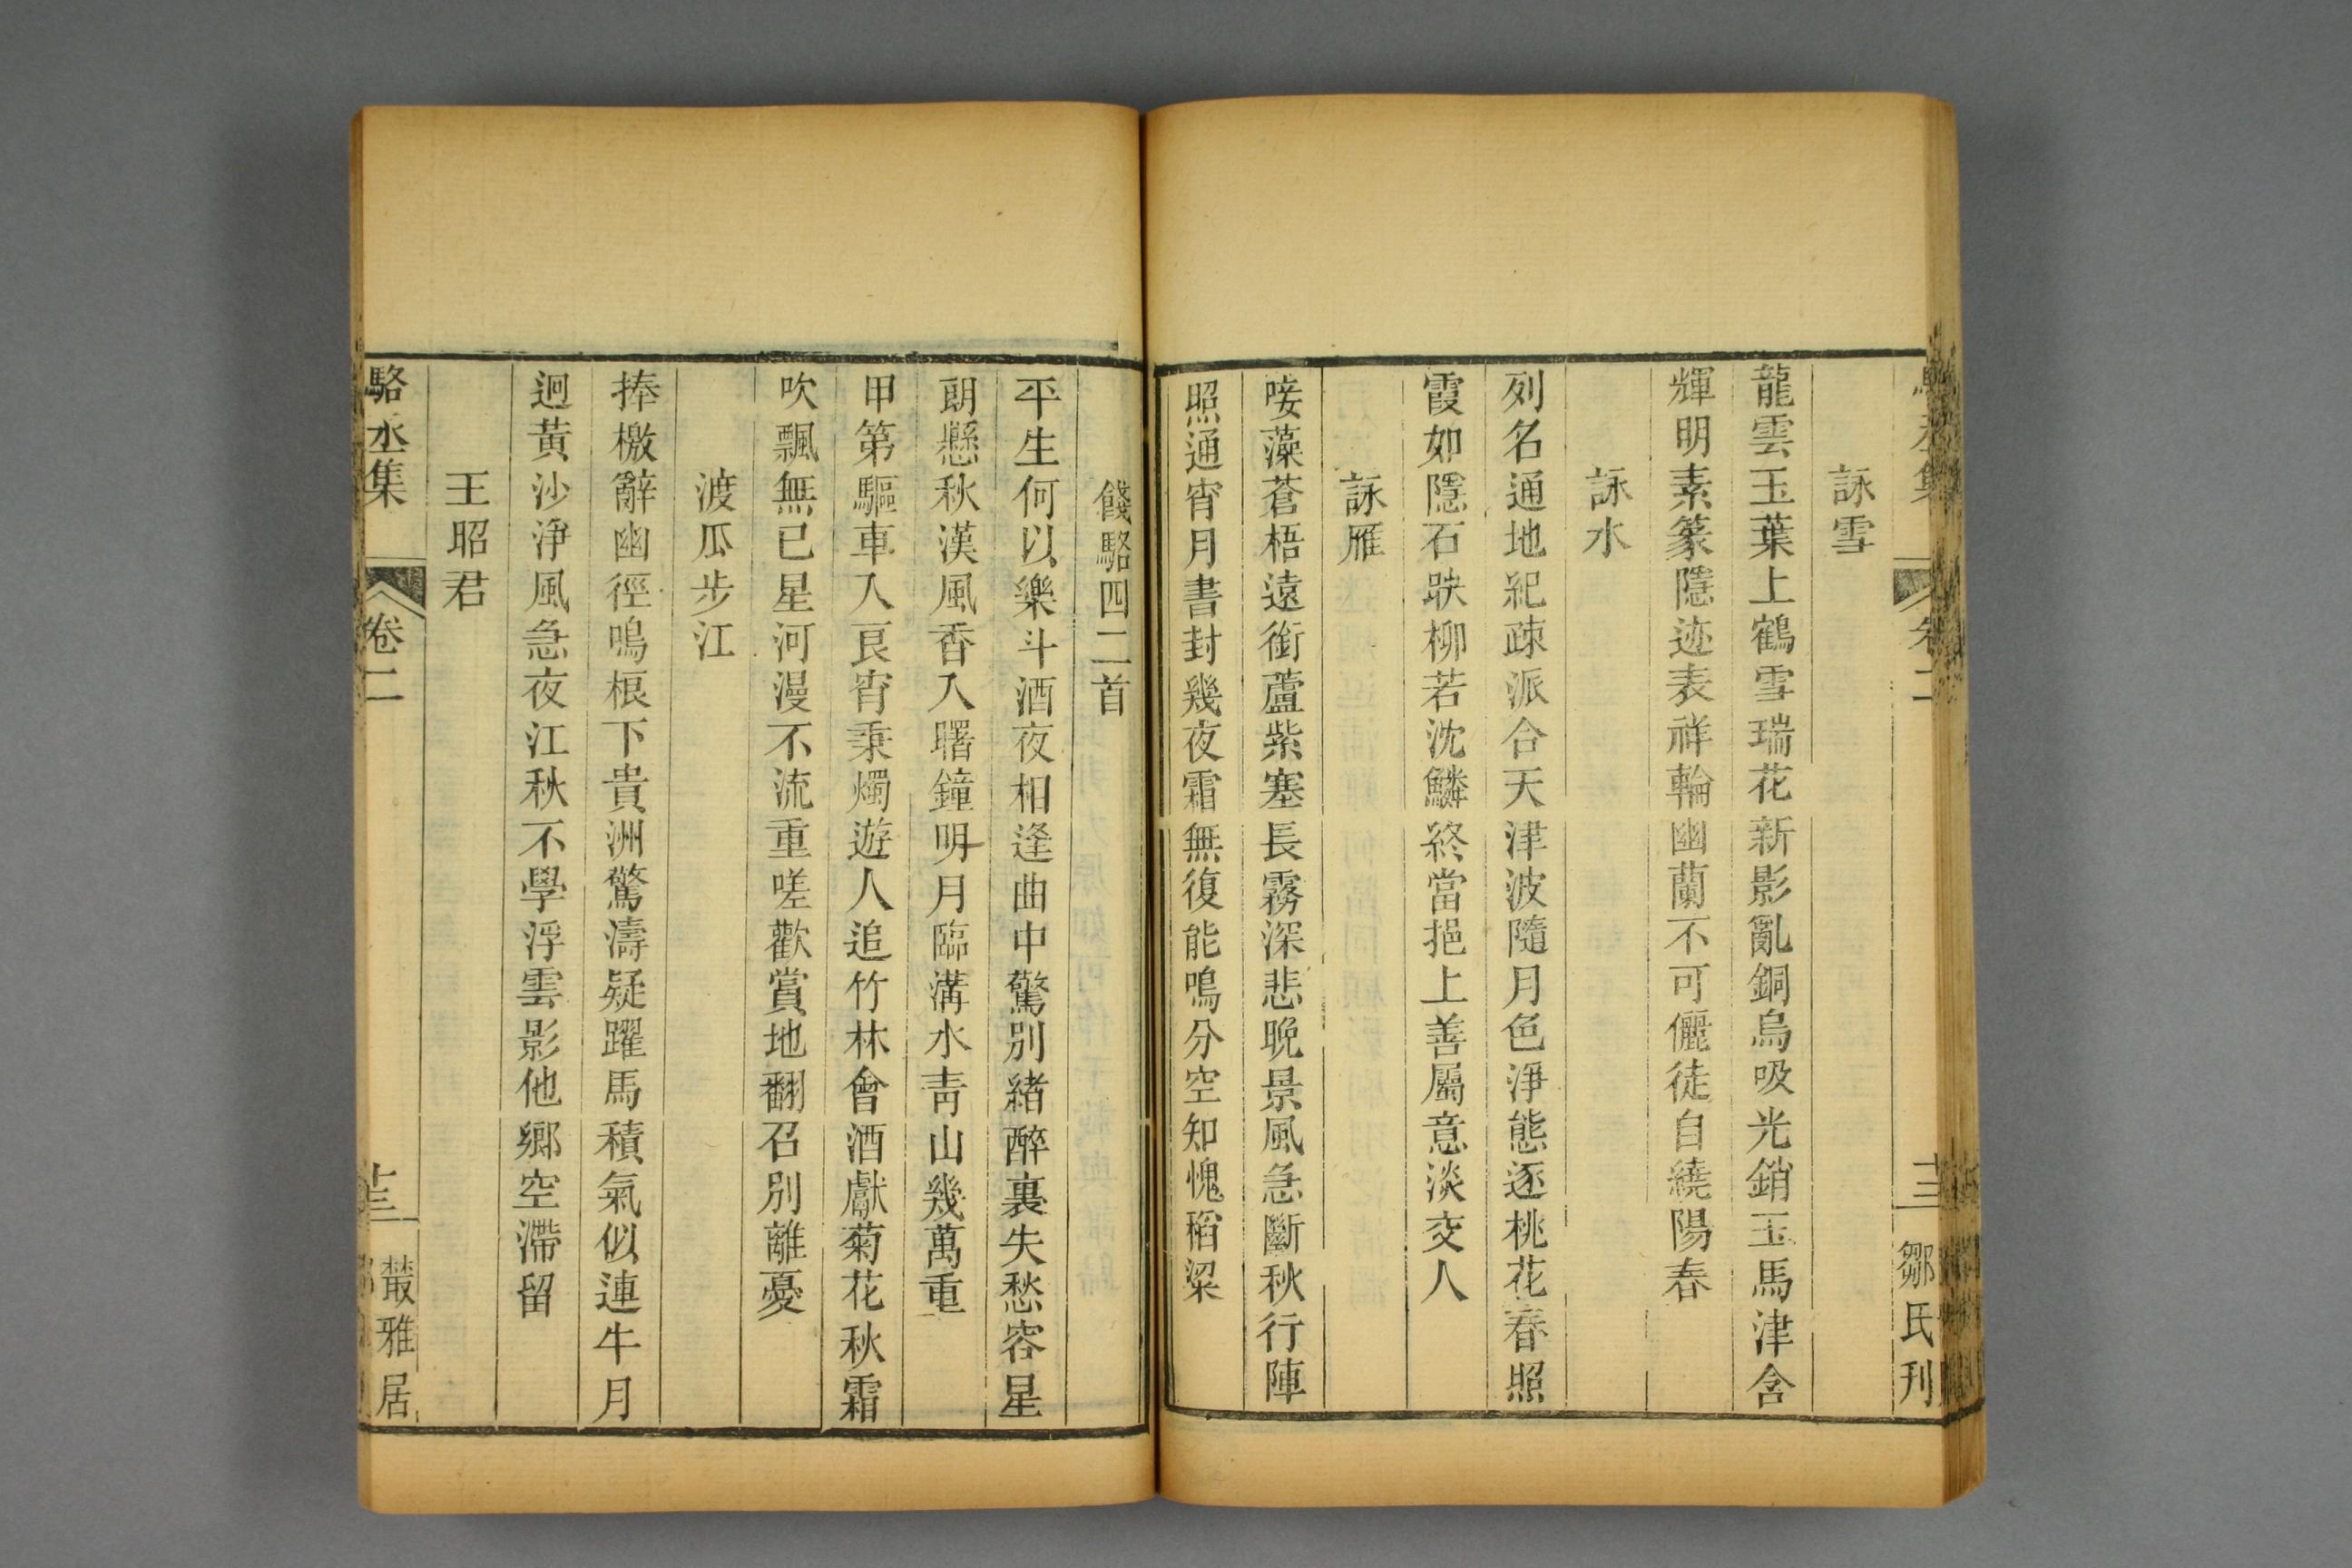 詠雪
龍雲玉葉上鶴雪瑞花新影亂銅烏吸光銷玉馬津含
輝明素篆隱迹表祥輪幽蘭不可儷徒自繞陽春
詠水
列名通地紀疎派合天津波隨月色淨態逐桃花春照
霞如隱石映柳若沈鱗終當挹上善屬意淡交人
詠雁
唼藻蒼梧遠銜蘆紫塞長霧深悲晚景風急斷秋行陣
照通宵月書封幾夜霜無復能鳴分空知愧稻粱
卷二
十三
鄒氏刊
餞駱四二首
平生何以樂斗酒夜相逢曲中驚別緒醉裏失愁容星
朗懸秋漢風香入曙鐘明月臨溝水青山幾萬重
甲第驅車入良宵秉燭遊人追竹林會酒獻菊花秋霜
吹飄無已星河漫不流重嗟歡賞地翻召別離憂
渡瓜步江
捧檄辭幽徑鳴根下貴洲驚濤疑躍馬積氣似連牛月
迥黃沙淨風急夜江秋不學浮雲影他鄉空滯留
王昭君
駱丞集
卷二
十三
叢雅居